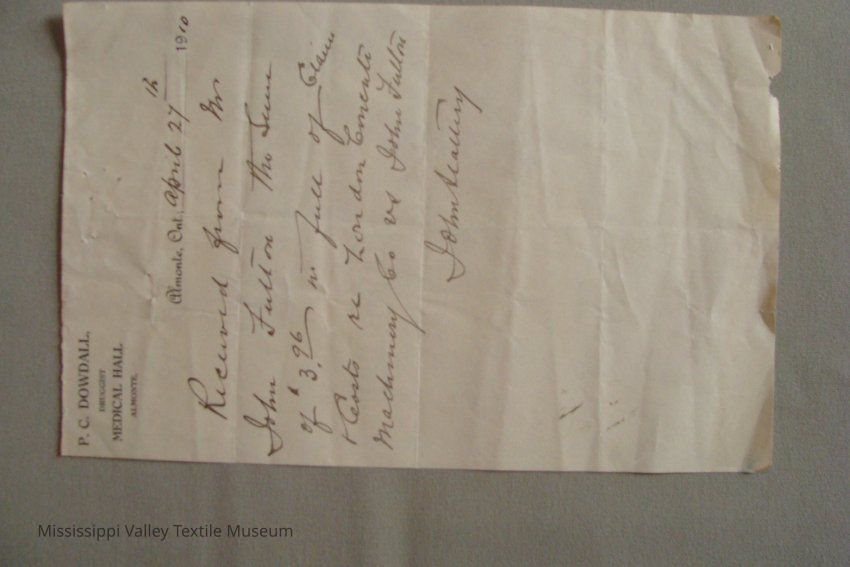 P. C. DOWDALL,
DRUGGIST
MEDICAL HALL
ALMONTE,
Almonte, Ont., April 27th 1910
Received from Mr
John Fulton the Sum
of $3.96 in full of Claim
& Costs re London Cement
Machinery Co vs John Fulton
John Slattery
Mississippi Valley Textile Museum